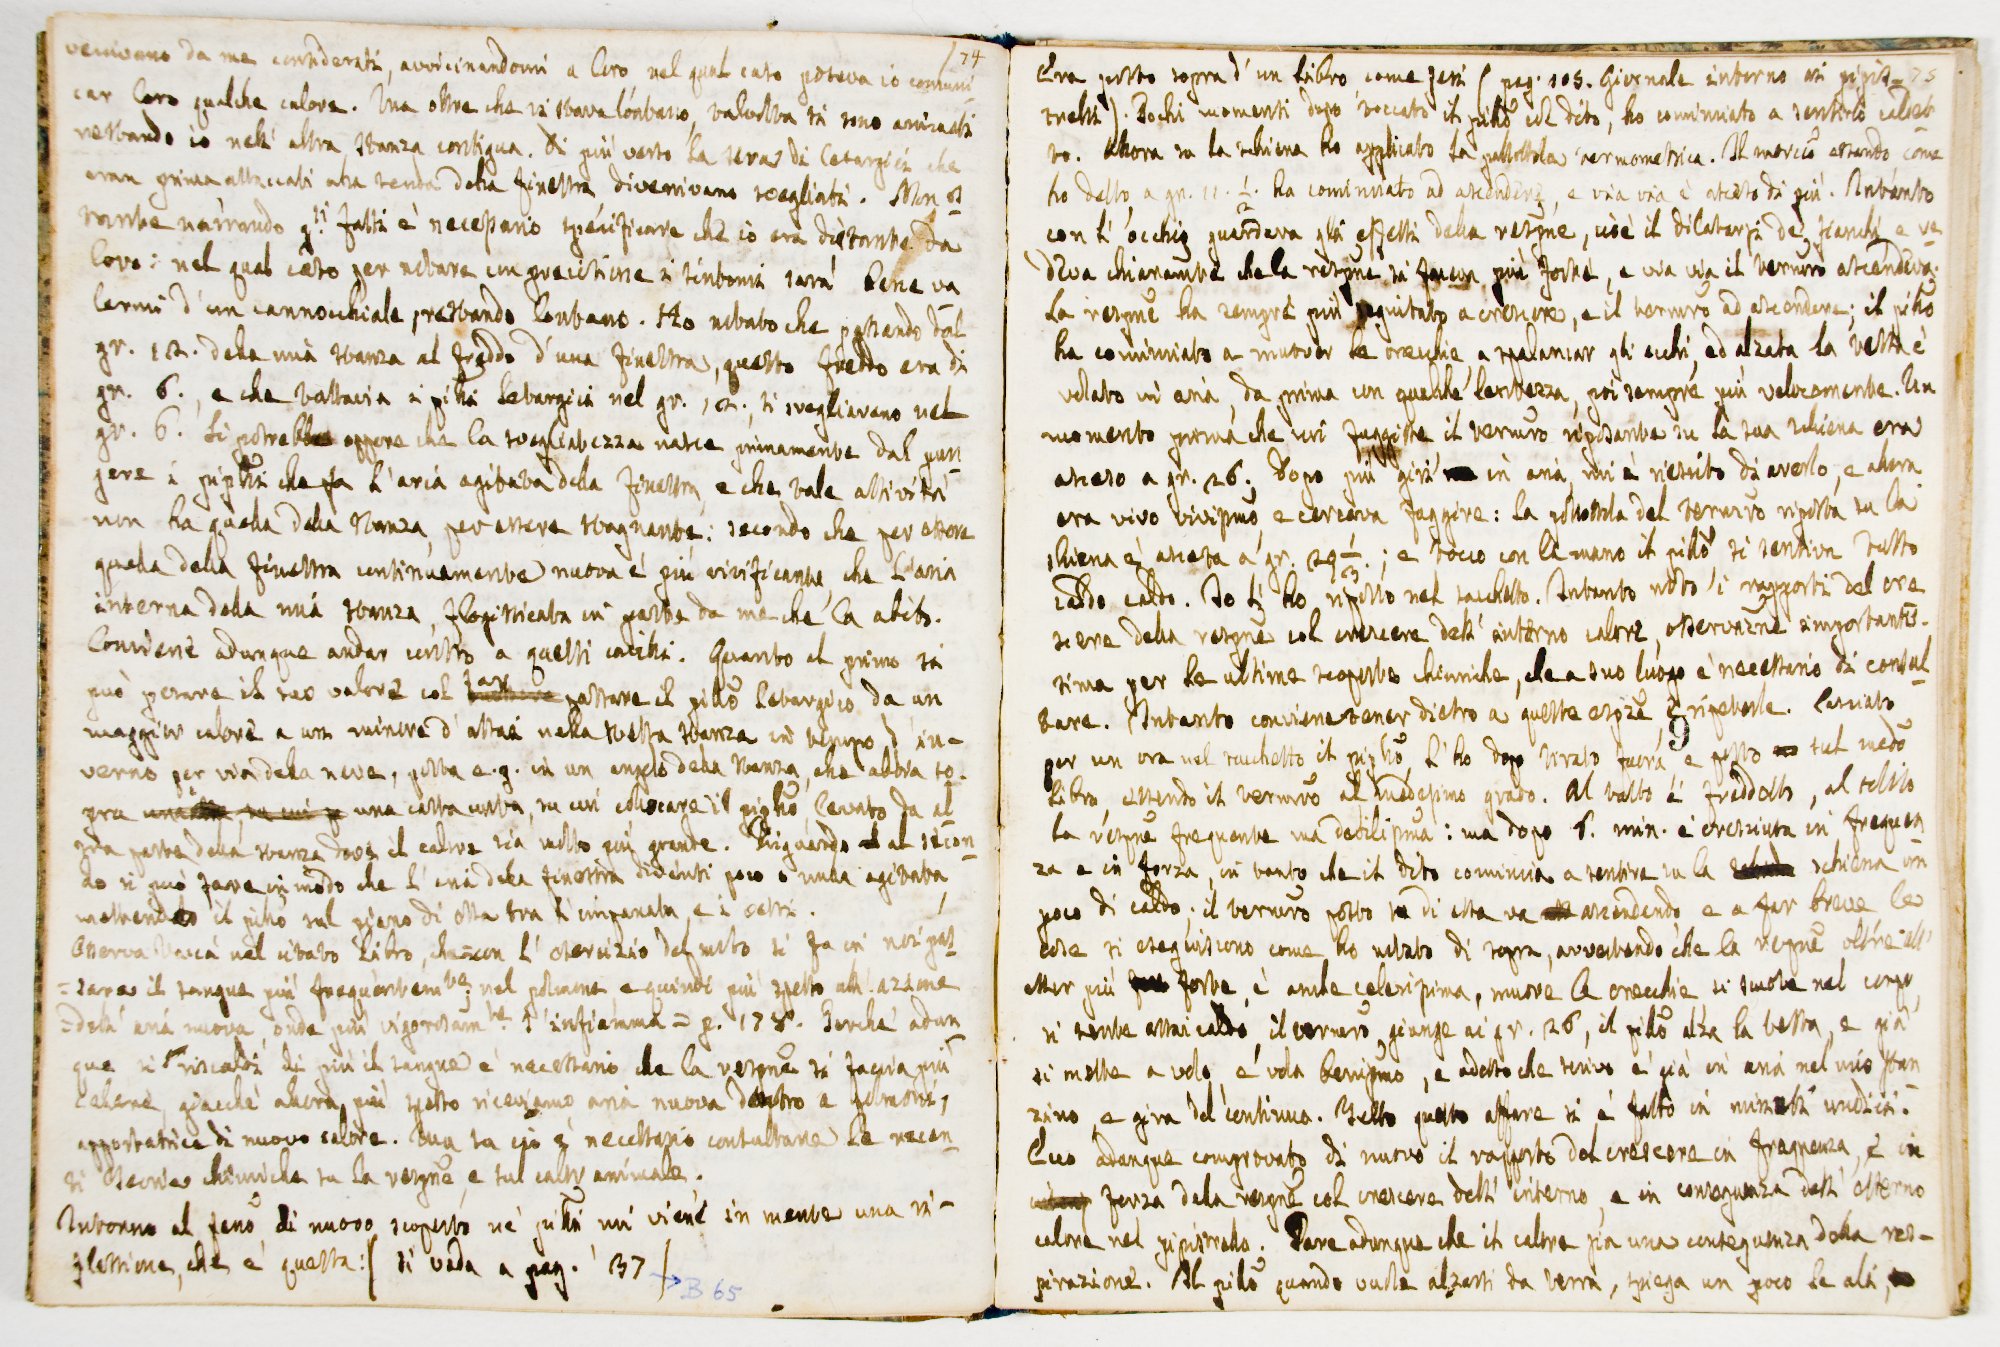 74
venivano da me considerati, avvicinandomi a loro nel qual caso poteva io comuni-
car loro qualche calore. Ma oltre che si stava lontano, talvolta si sono svegliati
restando io nell' altra stanza contigua. Di più verso la sera di letargici che
eran prima attaccati alla tenda della finestra divenivano svegliati. Non os-
tante narrando q.ti fatti è necessario specificare che io era distante da
loro: nel qual caso per notare con precisione i sintomi sarà bene va
lermi d' un cannocchiale, restando lontano. Ho notato che passando dal
gr. 12. della mia stanza al freddo d' una finestra, questo freddo era di
gr. 6., e che tuttavia i pili letargici nel gr. 12., si svegliavano nel
gr. 6. Si potrebbe opporre che la svegliatezza nasce primamente dal pun
gere i pipili che fa l' aria agitata della finestra, e che tale attività
non ha quella della stanza, per essere stagnante: secondo che per essere
quella della finestra continuamente nuova è più vivificante, che l' aria
interna della mia stanza, flogisticata in parte da me che la abito.
Conviene adunque andar contro a questi ostacoli. Quanto al primo si
può pesare il suo valore col far passare il pilo letargico da un
maggior calore a un minore d' assai nella stessa stanza in tempo d' in-
verno per via della neve, posta e.g. in un angolo della stanza, che abbia so-
pra una carta, su cui collocare il piplo levato da al-
tra parte della stanza dove il calore sia molto più grande. Riguardo al secon-
do si può fare in modo che l' aria della finestra diventi poco o nulla agitata,
mettendo il pilo sul piano di essa tra l' impanata, e i vetri.
Osserva nel citato Libro, che = con l' esercizio del moto si fa in noi pas-
= sare il sangue più frequentem.te nel polmone, e quindi più spesso all' azione
= dell' aria nuova, onde più vigorosam.te s' infiamma = p. 178. Perchè adun
que si riscaldi di più il sangue è necessario che la respne si faccia più
celere, giacchè allora più spesso riceviamo aria nuova dentro a polmoni,
apportatrice di nuovo calore. Ma su ciò è necessario consultare le recen-
ti Teorie chimiche su la respne, e sul calor animale.
Intorno al feno di nuovo scoperto ne' pili mi viene in mente una ri-
flessione, che è questa: ( si vada a pag. 137 )
→ B 65
75
Era posto sopra d' un Libro come jeri ( pag. 105. Giornale intorno ai pipis-
trelli ). Pochi momenti dopo toccato il pilo col dito, ho cominciato a sentirlo caldet-
to. Allora su la schiena ho applicato la pallottola termometrica. Il mercurio essendo come
ho detto a gr. 11. 1/2. ha cominciato ad ascendere, e via via è asceso di più. Intanto
con l' occhio guardava gli effetti della respne, cioè il dilatarsi de' fianchi e ve-
deva chiaramente che la respne si faceva più forte, e via via il termro ascendeva.
La respne ha sempre più seguitato a crescere, e il termro ad ascendere; il pilo
ha cominciato a muover le orecchie, a spalancar gli occhi, ed alzata la testa è
volato in aria, da prima con qualche lentezza, poi sempre più velocemente. Un
momento prima che mi fuggisse il termro riposante su la sua schiena era
asceso a gr. 26. Dopo più giri in aria, mi è riescito di averlo, e allora
era vivo vivissimo, e cercava fuggire: la pallottola del termro riposta su la
schiena è ascesa a gr. 29 1/3.; e tocco con la mano il pilo si sentiva tutto
caldo caldo. Io l' ho riposto nel sacchetto. Intanto noto i rapporti del cre
scere della respne col crescere dell' interno calore, osservazne importantis-
sima per le ultime scoperte chimiche, che a suo luogo è necessario di consul-
tare. Intanto conviene tener dietro a queste esprze, e ripeterle. Lasciato
per un ora nel sacchetto il piplo, l' ho dopo tirato fuora e posto sul medo
Libro, essendo il termro al medesimo grado. Al tatto è freddotto, al solito
la respne frequente ma debilissima: ma dopo 6. min. è cresciuta in frequen-
za e in forza, in tanto che il dito comincia a sentire su la schiena un
poco di caldo. il termro posto su di essa va ascendendo e a far breve le
cose si eseguiscono come ho notato di sopra, avvertendo che la respne oltre all'
esser più forte, è anche celerissima, muove le orecchie si scuote nel corpo,
si sente assai caldo, il termro giunge ai gr. 26, il pilo alza la testa, e già
si mette a volo, e vola benissimo, e adesso che scrivo è già in aria nel mio stan-
zino, e gira del continuo. Tutto questo affare si è fatto in minuti undici.
Ecco adunque comprovato di nuovo il rapporto del crescere in frequenza, e in
forza della respne col crescere dell' interno, e in conseguenza dell' esterno
calore nel pipistrello. Pare adunque che il calore sia una conseguenza della res-
pirazione. Il pilo quando vuole alzarsi da terra, spiega un poco le ali,